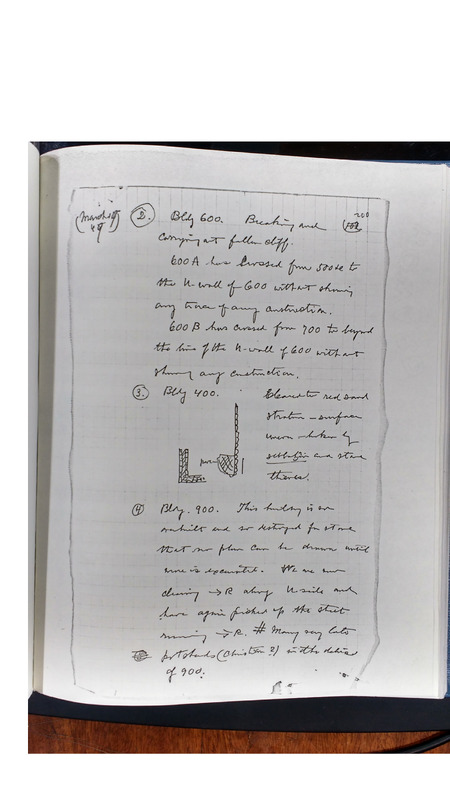 200
(March 19 49) (2.) Bldg 600. Breaking and
carrying out fallen cliff.
600 A has crossed from 500 to
the N-wall of 600 without showing
any trace of any construction.
600 B has crossed from 700 to beyond
the line of the N-wall of 600 without
showing any construction.
(3.) Bldg 400. Cleared to red sand
stratum – surface
uneven – broken by
sebbakhin and stone
thieves.
(4) Bldg. 900. This building is so
and so destroyed for stone
that no plan can be drawn until
more is excavated. We are now
clearing → R along N side and
have again picked up the street
running → R. # Many very late
potsherds (Christian?) in the debris
of 900.